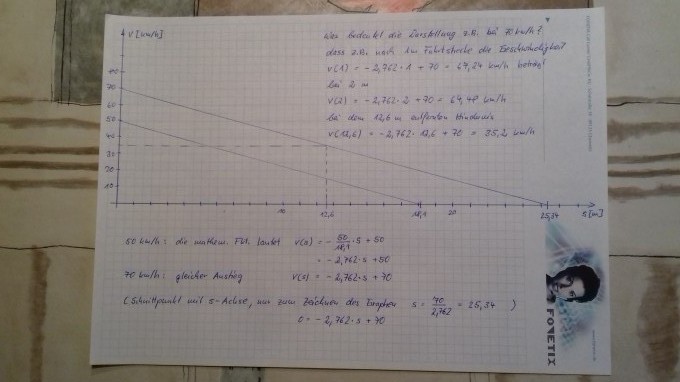 v [km/h]
Was bedeutet die Darstellung z.B. bei 70 km/h?
dass z.B. nach 1m Fahrtstrecke die Geschwindigkeit
v(1) = -2,762 · 1 + 70 = 67,24 km/h beträgt
bei 2 m
v(2) = -2,762 · 2 + 70 = 64,48 km/h
bei dem 12,6 m entfernten Hindernis
v(12,6) = -2,762 · 12,6 + 70 = 35,2 km/h
70
50
40
30
20
10
10
12,6
18,1
20
25,34
s [m]
50 km/h: die mathem. Fkt. lautet v(s) = - 50/18,1 · s + 50
= -2,762 · s + 50
70 km/h: gleicher Anstieg v(s) = -2,762 · s + 70
(Schnittpunkt mit s-Achse, nur zum Zeichnen des Graphen s = 70/2,762 = 25,34 )
0 = -2,762 · s + 70
FONETIX